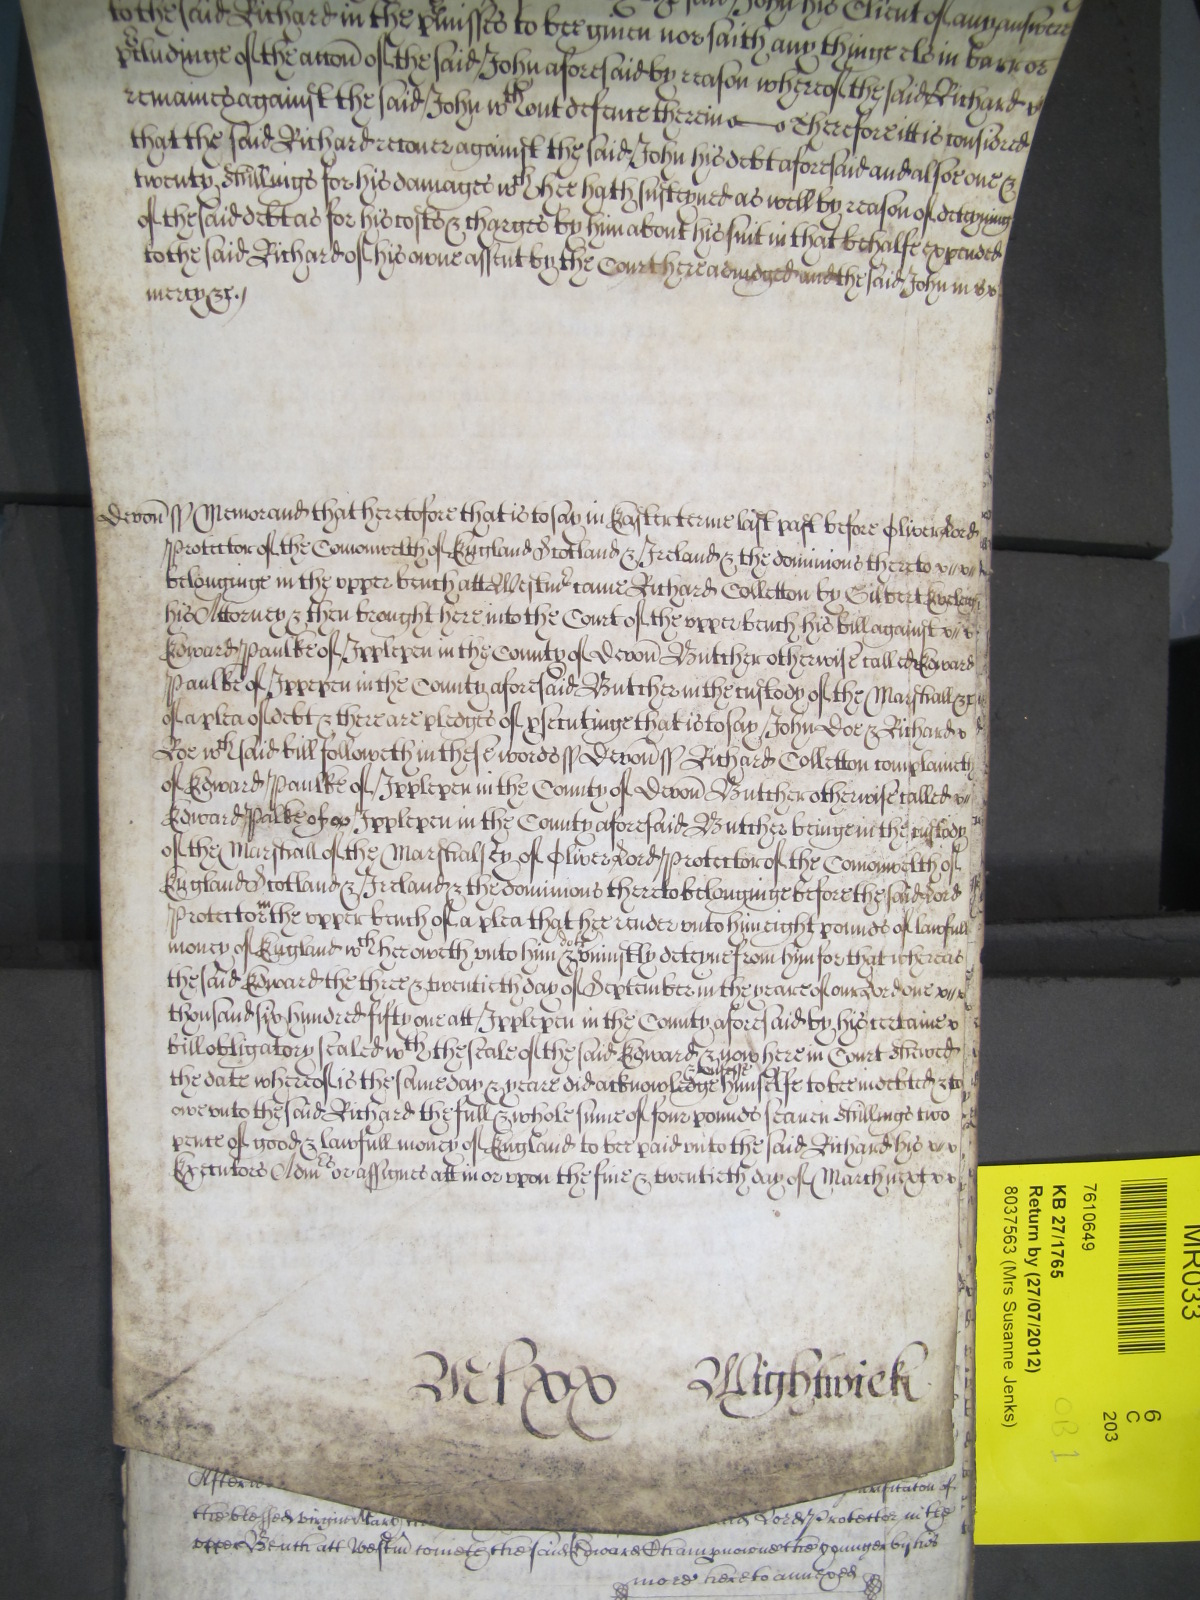 said John his Client of any answere
to the said Richard in the pmisses to bee given nor saith any thinge els in barr or
pcludinge of the accon of the said John aforesaid by reason whereof the said Richard
remaines against the said John wth out defence therein Therefore itt is considred
that the said Richard recover against the said John his debt aforesaid and alsoe one &
twenty shillings for his damages wch hee hath susteyned as well by reason of deteyning
of the said debt as for his costs & charges by him about his suit in that behalfe expended
to the said Richard of his owne assent by the Court here adiudged and the said John in
mercy &c.
Devon ss Memorand that heretofore that is to say in Easter terme last past before Oliver Lord
Protector of the Comonwelth of England Scotland & Ireland & the dominions thereto
belonginge in the upper bench att Westmr came Richard Colletton by Gilbert
his Attorney & then brought here into the Court of the upper bench his bill against
Edward Paulke of Ipplepen in the County of Devon Butcher otherwise called Edward
Paulke of Ipplepen in the County aforesaid Butcher in the custody of the Marshall &c
of a plea of debt & there are pledges of psecutinge that is to say John Doe & Richard
Roe wch said bill followeth in these words ss Devon ss Richard Colletton complaineth
of Edward Paulke of Ipplepen in the County of Devon Butcher otherwise called
Edward Palke of Ipplepen in the County aforesaid Butcher beinge in the custody
of the Marshall of the Marshalsey of Oliver Lord Protector of the Comonwelth of
England Scotland & Ireland & the dominions thereto belonginge before the said Lord
Protector in the upper bench of a plea that hee render unto him eight pounds of lawfull
money of England wch hee oweth unto him & doth uniustly deteyne from him for that whereas
the said Edward the three & twentieth day of September in the yeare of our Lord one
thousand six hundred fifty one att Ipplepen in the County aforesaid by his certaine
bill obligatory sealed wth the seale of the said Edward & now here in Court shewed
the date whereof is the same day & yeare did acknowledge & confesse himselfe to bee indebted & to
owe unto the said Richard the full & whole sume of four pounds seaven shillings two
pence of good & lawfull money of England to bee paid unto the said Richard his
Executors Admrs or assignes att in or upon the five & twentieth day of March next
Mlxx Wightwick
After
the blessed virgin Mary Lord Protector in the
upper Bench att Westm cometh the said Edward the younger by his
more hereto annexed
MR033
6
C
203
7610649
KB 27/1765
Return by (27/07/2012)
8037563 (Mrs Susanne Jenks)
OB 1